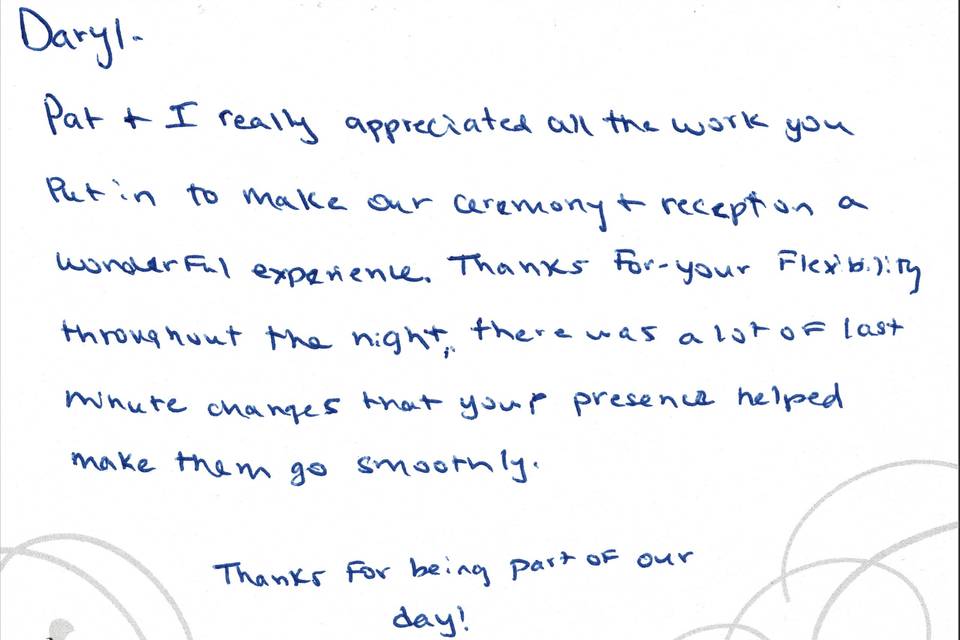 Daryl-
Pat + I really appreciated all the work you
Put in to make our ceremony + reception a
wonderful experience. Thanks For-your Flexibility
throughout the night, there was a lot of last
minute changes that your presence helped
make them go smoothly.
Thanks for being part of our
day!